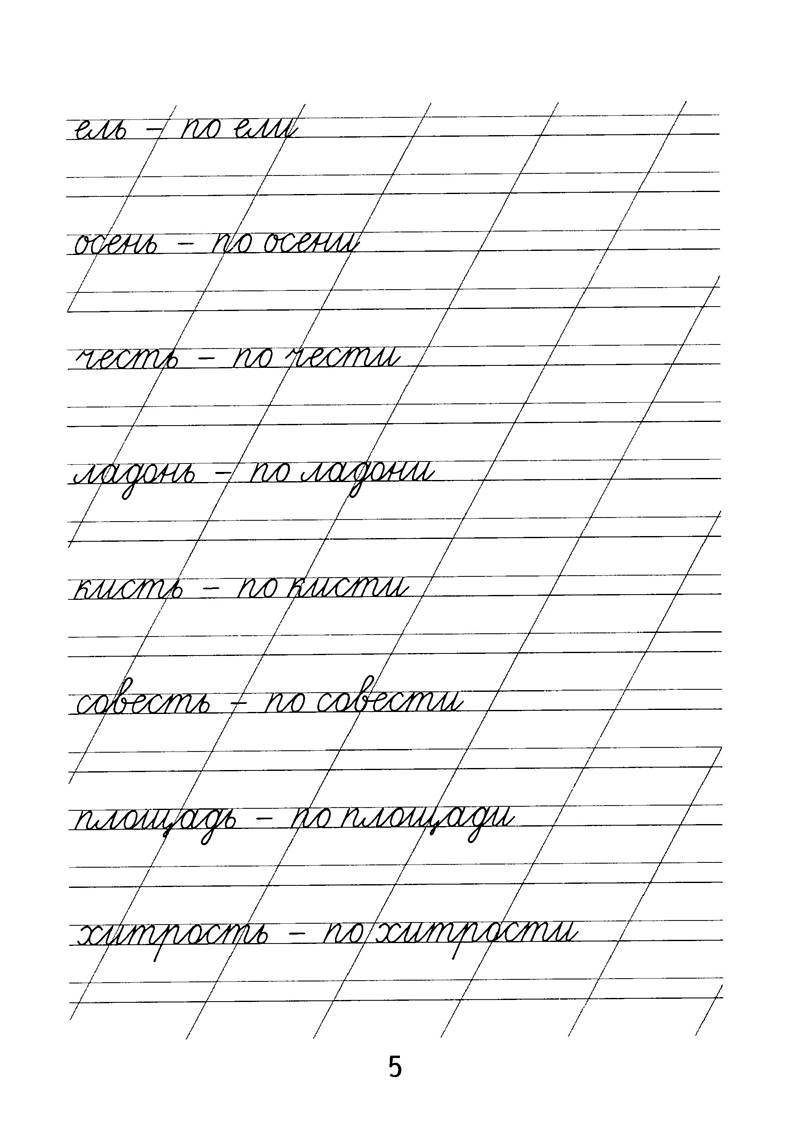 ель – по ели
осень – по осени
честь – по чести
ладонь – по ладони
кисть – по кисти
совесть – по совести
площадь – по площади
хитрость – по хитрости
5